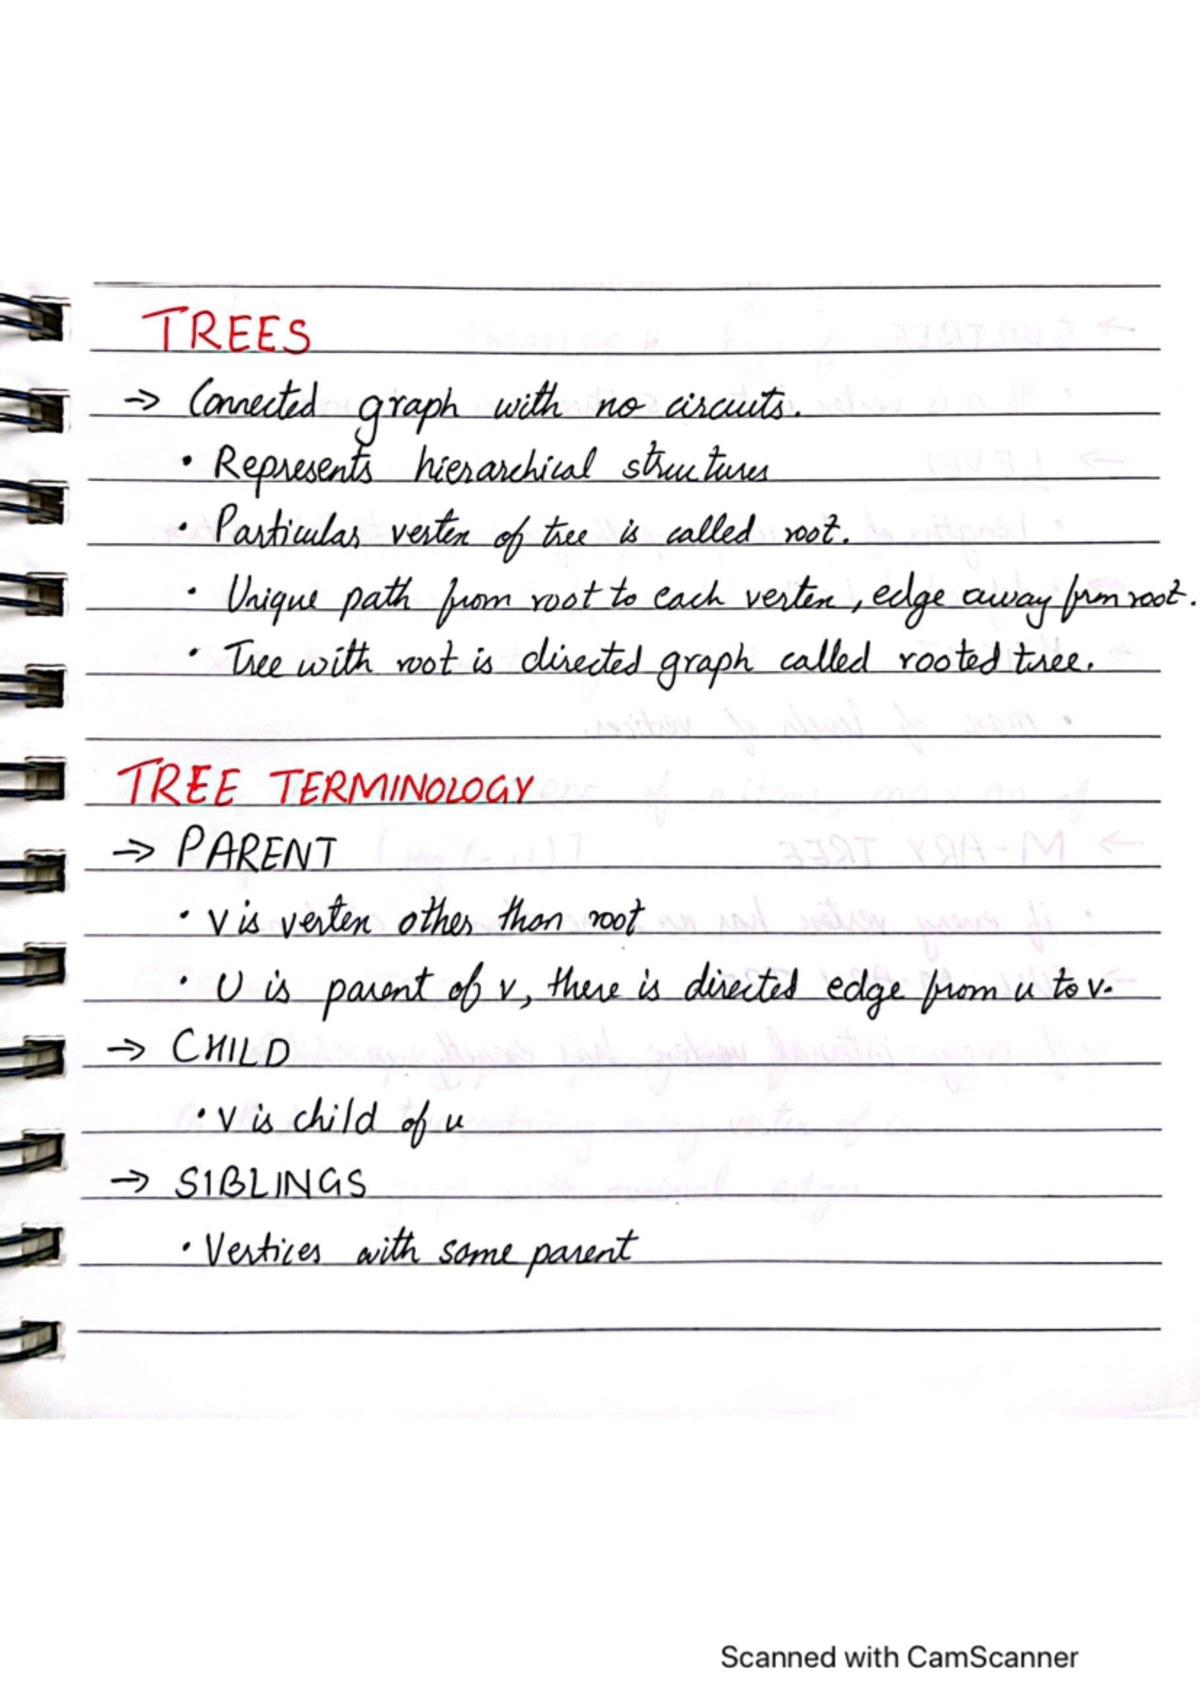 TREES
→ Connected graph with no circuits.
• Represents hierarchical structures
• Particular vertex of tree is called root.
• Unique path from root to each vertex, edge away from root.
• Tree with root is directed graph called rooted tree.
TREE TERMINOLOGY
→ PARENT
• v is vertex other than root
• U is parent of v, there is directed edge from u to v.
→ CHILD
• v is child of u
→ SIBLINGS
• Vertices with same parent
Scanned with CamScanner